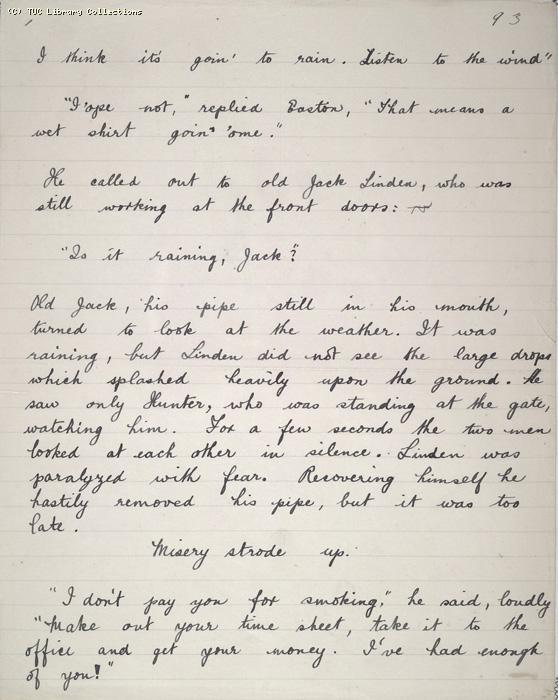 (C) TUC Library Collections
93
I think it's goin' to rain. Listen to the wind"
"I'ope not," replied Easton, "That means a
wet shirt goin' 'ome."
He called out to old Jack Linden, who was
still working at the front doors:
"Is it raining, Jack?"
Old Jack, his pipe still in his mouth,
turned to look at the weather. It was
raining, but Linden did not see the large drops
which splashed heavily upon the ground. He
saw only Hunter, who was standing at the gate,
watching him. For a few seconds the two men
looked at each other in silence. Linden was
paralyzed with fear. Recovering himself he
hastily removed his pipe, but it was too
late.
Misery strode up.
"I don't pay you for smoking," he said, loudly
"Make out your time sheet, take it to the
office and get your money. I've had enough
of you!"